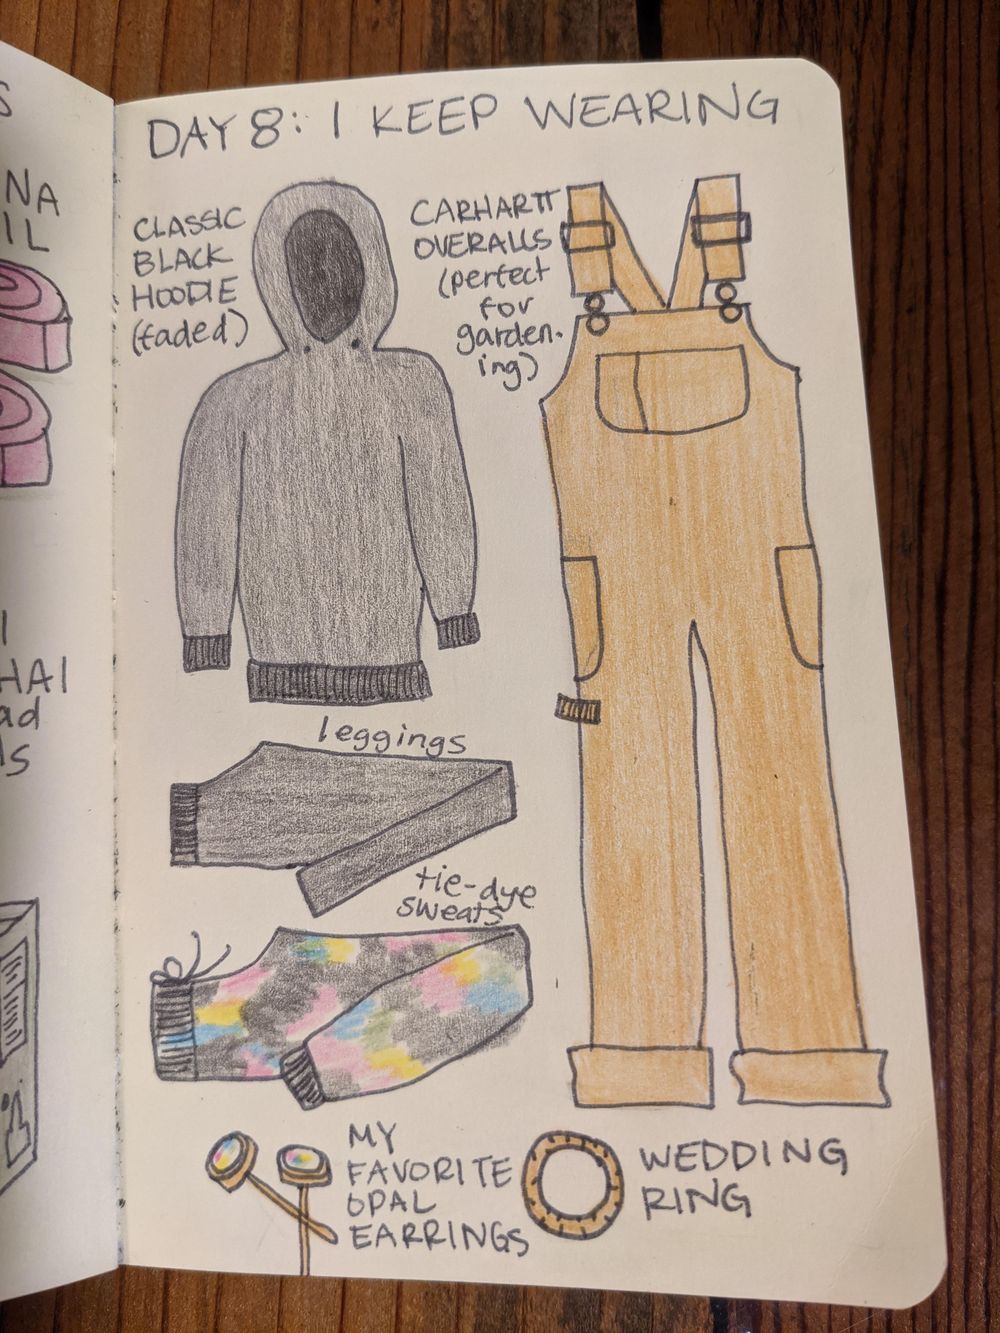 DAY 8: I KEEP WEARING
CLASSIC
BLACK
HOODIE
(faded)
CARHARTT
OVERALLS
(perfect
for
garden-
ing)
leggings
tie-dye
sweats
MY
FAVORITE
OPAL
EARRINGS
WEDDING
RING